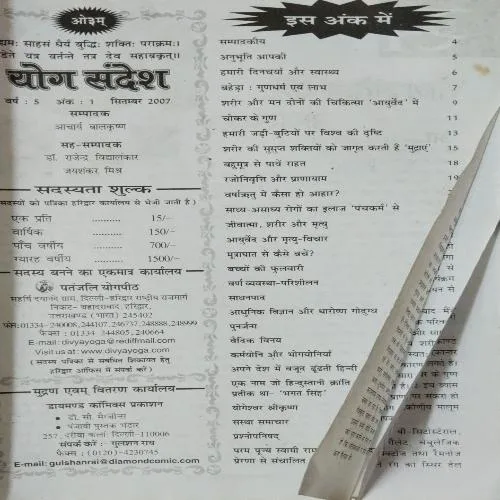 ओ३म्
उद्यमः साहसं धैर्यं बुद्धिः शक्तिः पराक्रमः।
षडेते यत्र वर्तन्ते तत्र देव सहायकृत्॥
योग संदेश
वर्ष : 5 अंक : 1 सितम्बर 2007
सम्पादक
आचार्य बालकृष्ण
सह-सम्पादक
डॉ. राजेन्द्र विद्यालंकार
जयशंकर मिश्र
सदस्यता शुल्क
(सदस्यों को पत्रिका हरिद्वार कार्यालय से भेजी जाती है)
एक प्रति ......... 15/–
वार्षिक ......... 150/–
पाँच वर्षीय ......... 700/–
ग्यारह वर्षीय ......... 1500/–
सदस्य बनने का एकमात्र कार्यालय
पतंजलि योगपीठ
महर्षि दयानंद ग्राम, दिल्ली-हरिद्वार राष्ट्रीय राजमार्ग
निकट- बहादराबाद, हरिद्वार,
उत्तराखण्ड (भारत) 249402
फोन:01334-240008,244107,246737,248888,248999
फैक्स : 01334 244805,240664
E-mail : divyayoga@rediffmail.com
Visit us at : www.divyayoga.com
(सदस्य पत्रिका से संबंधित शिकायत हेतु
हरिद्वार ऑफिस में संपर्क करें)
मुद्रण एवम वितरण कार्यालय
डायमण्ड कॉमिक्स प्रकाशन
• डी. सी. मैग्जीन्स
• पंजाबी पुस्तक भंडार
257, दरीबा कलां, दिल्ली-110006
संपर्क करें : गुलशन राय
फैक्स : (0120)-4230745
E-mail: gulshanrai@diamondcomic.com
इस अंक में
सम्पादकीय 4
अनुभूति आपकी 5
हमारी दिनचर्या और स्वास्थ्य 6
बहेड़ा : गुणधर्म एवं लाभ 7
शरीर और मन दोनों की चिकित्सा 'आयुर्वेद' में 9
चोकर के गुण 11
हमारी जड़ी-बूटियों पर विश्व की दृष्टि 13
शरीर की सुसुप्त शक्तियों को जागृत करती हैं 'मुद्राएं' 15
बहुमूत्र से पायें राहत 18
रजोनिवृत्ति और प्राणायाम 19
वर्षाऋतु में कैसा हो आहार?
साध्य-असाध्य रोगों का इलाज 'पंचकर्म' से
जीवात्मा, शरीर और मृत्यु
आयुर्वेद और मृत्यु-विचार
मूत्राघात से कैसे बचें?
बच्चों की फुलवारी
वर्ण व्यवस्था-परिशीलन
सावधानपात
आधुनिक विज्ञान और धारोष्ण गोदुग्ध
पुनर्जन्म
वैदिक विनय
कर्मयोनि और भोगयोनियाँ
अपने देश में वजूद ढूंढती हिन्दी
एक नाम जो हिन्दुस्तानी क्रांति
प्रतीक था- 'भगत सिंह'
योगेश्वर श्रीकृष्ण
संस्था समाचार
प्रश्नोपनिषद्
परम पूज्य स्वामी राम
प्रेरणा से संचालित